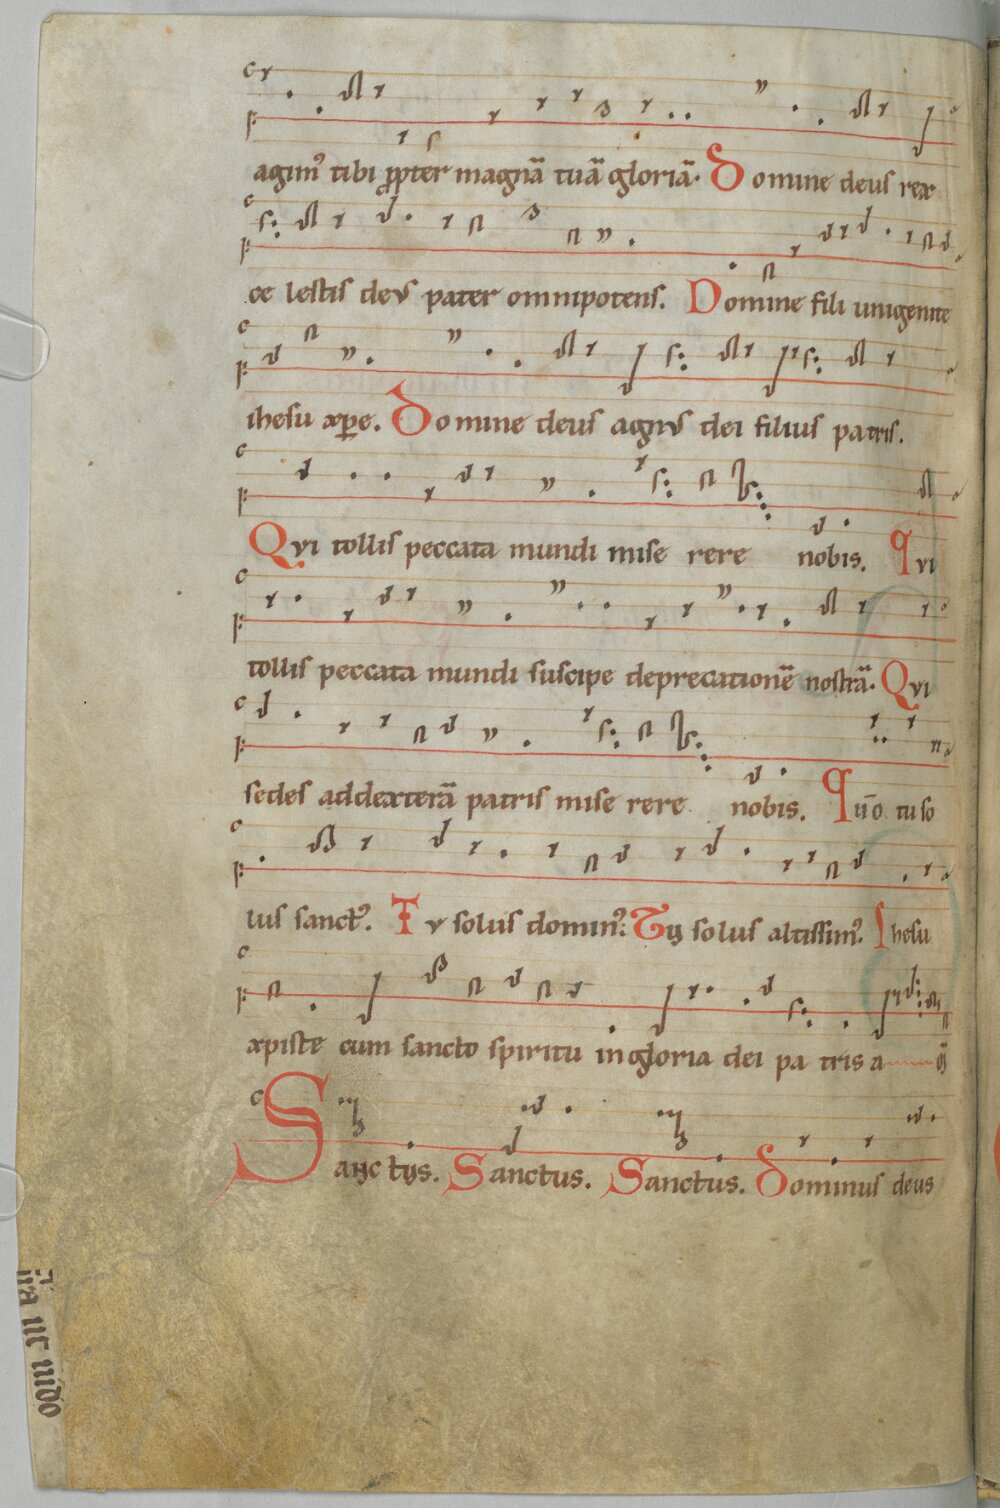 agim⁹ tibi ꝓpter magnā tuā gloriā. Domine deus rex
ce lestis deus pater omnipotens. Domine fili unigenite
ihesu xp̄e. Domine deus agnus dei filius patris.
Qui tollis peccata mundi mise rere nobis. Qui
tollis peccata mundi suscipe deprecationē nostrā. Qui
sedes addexterā patris mise rere nobis. Qūo tu so
lus sanct⁹. Tu solus domin⁹. Tu solus altissim⁹. Ihesu
xpiste cum sancto spiritu in gloria dei pa tris a
Sanctus. Sanctus. Sanctus. Dominus deus